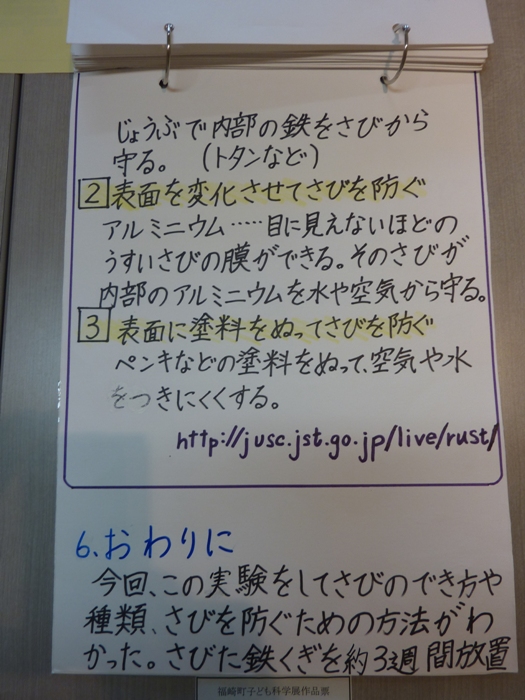 じょうぶで内部の鉄をさびから
守る。（トタンなど）
2 表面を変化させてさびを防ぐ
アルミニウム……目に見えないほどの
うすいさびの膜ができる。そのさびが
内部のアルミニウムを水や空気から守る。
3 表面に塗料をぬってさびを防ぐ
ペンキなどの塗料をぬって、空気や水
をつきにくくする。
http://jusc.jst.go.jp/live/rust/
6.おわりに
今回、この実験をしてさびのでき方や
種類、さびを防ぐための方法がわ
かった。さびた鉄くぎを約3週間放置
福崎町子ども科学展作品票